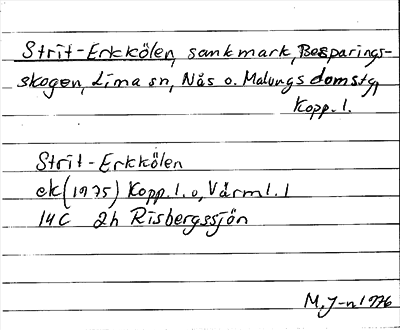 Strit-Erkkölen, sankmark, Besparings-
skogen, Lima sn, Nås o. Malungs domstg,
Kopp. l.
Strit-Erkkölen
ek (1975) Kopp. l. o, Värml. l
14 C 2h Risbergssjön
M, J-n 1976